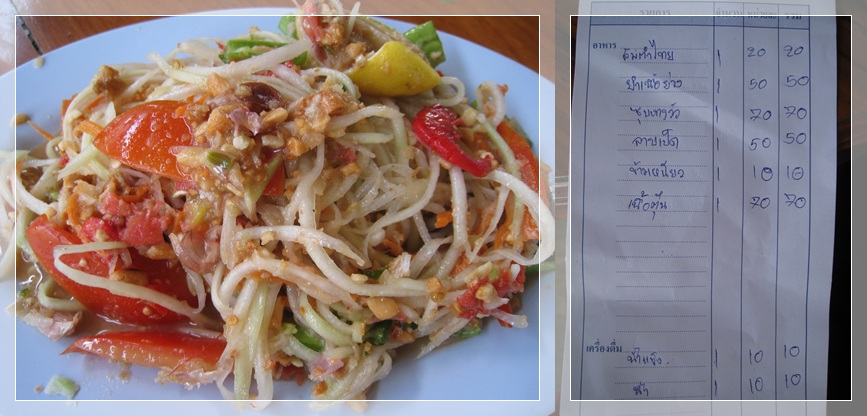 รายการ จำนวน หน่วยละ รวม
อาหาร
ส้มตำไทย 1 20 20
ยำเนื้อย่าง 1 50 50
ซุปหางวัว 1 70 70
ลาบเป็ด 1 50 50
ข้าวเหนียว 1 10 10
เนื้อตุ๋น 1 70 70
เครื่องดื่ม
น้ำแข็ง 1 10 10
น้ำ 1 10 10